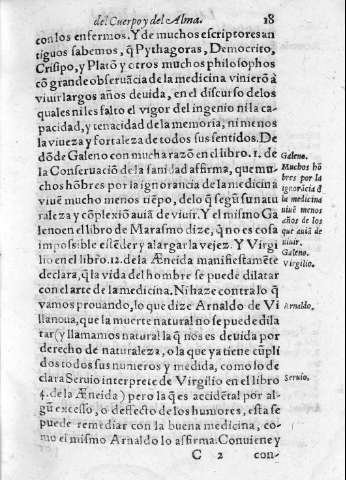 del Cuerpo y del Alma. 18
con los enfermos. Y de muchos escriptores an
tiguos sabemos, q̃ Pythagoras, Democrito,
Crisipo, y Platõ y otros muchos philosophos
cõ grande obseruãcia de la medicina vinierõ à
viuir largos años de vida, en el discurso de los
quales ni les falto el vigor del ingenio ni la ca-
pacidad, y tenacidad de la memoria, ni menos
la viueza y fortaleza de todos sus sentidos. De
dõde Galeno con mucha razõ en el libro. 1. de
la Conseruaciõ de la sanidad affirma, que mu-
chos hõbres por la ignorancia de la medicina
viuẽ mucho menos tiẽpo, de lo q̃ segũ su natu
raleza y cõplexiõ auiã de viuir. Y el mismo Ga
leno en el libro de Marasmo dize, q̃ no es cosa
impossible estẽder y alargar la vejez. Y Virgi
lio en el libro. 12. de la Æneida manifiestamẽte
declara, q̃ la vida del hombre se puede dilatar
con el arte de la medicina. Ni haze contra lo q̃
vamos prouando, lo que dize Arnaldo de Vi
llanoua, que la muerte natural no se puede dila
tar (y llamamos natural la q̃ nos es deuida por
derecho de naturaleza, o la que ya tiene cũpli
dos todos sus numeros y medida, como lo de
clara Seruio interprete de Virgilio en el libro
4. de la Æneida) pero la q̃ es accidẽtal por al-
gũ excesso, o deffecto de los humores, esta se
puede remediar con la buena medicina, co-
mo el mismo Arnaldo lo affirma: Conuiene y
C 2 con-
Galeno.
Muchos hõ
bres por la
ignorãcia d̃
la medicina
viuẽ menos
años de los
que auiã de
viuir.
Galeno.
Virgilio.
Arnaldo.
Seruio.